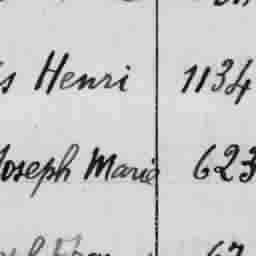 s Henri 1134
Joseph Marie 623